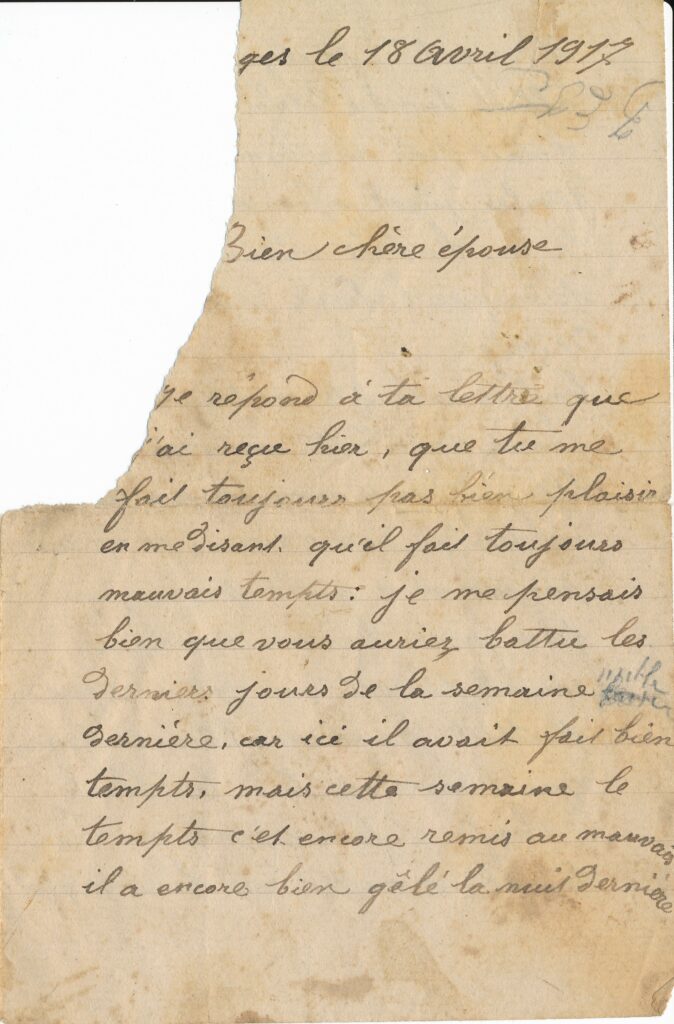 ges le 18 Avril 1917
Bien chère épouse
je répond à ta lettre que
j'ai reçu hier, que tu me
fait toujours pas bien plaisir
en me disant. qu'il fait toujours
mauvais tempts: je me pensais
bien que vous auriez battu les
derniers jours de la semaine
dernière, car ici il avait fait bien
tempts, mais cette semaine le
tempts c'et encore remis au mauvais
il a encore bien gêlé la nuit dernière